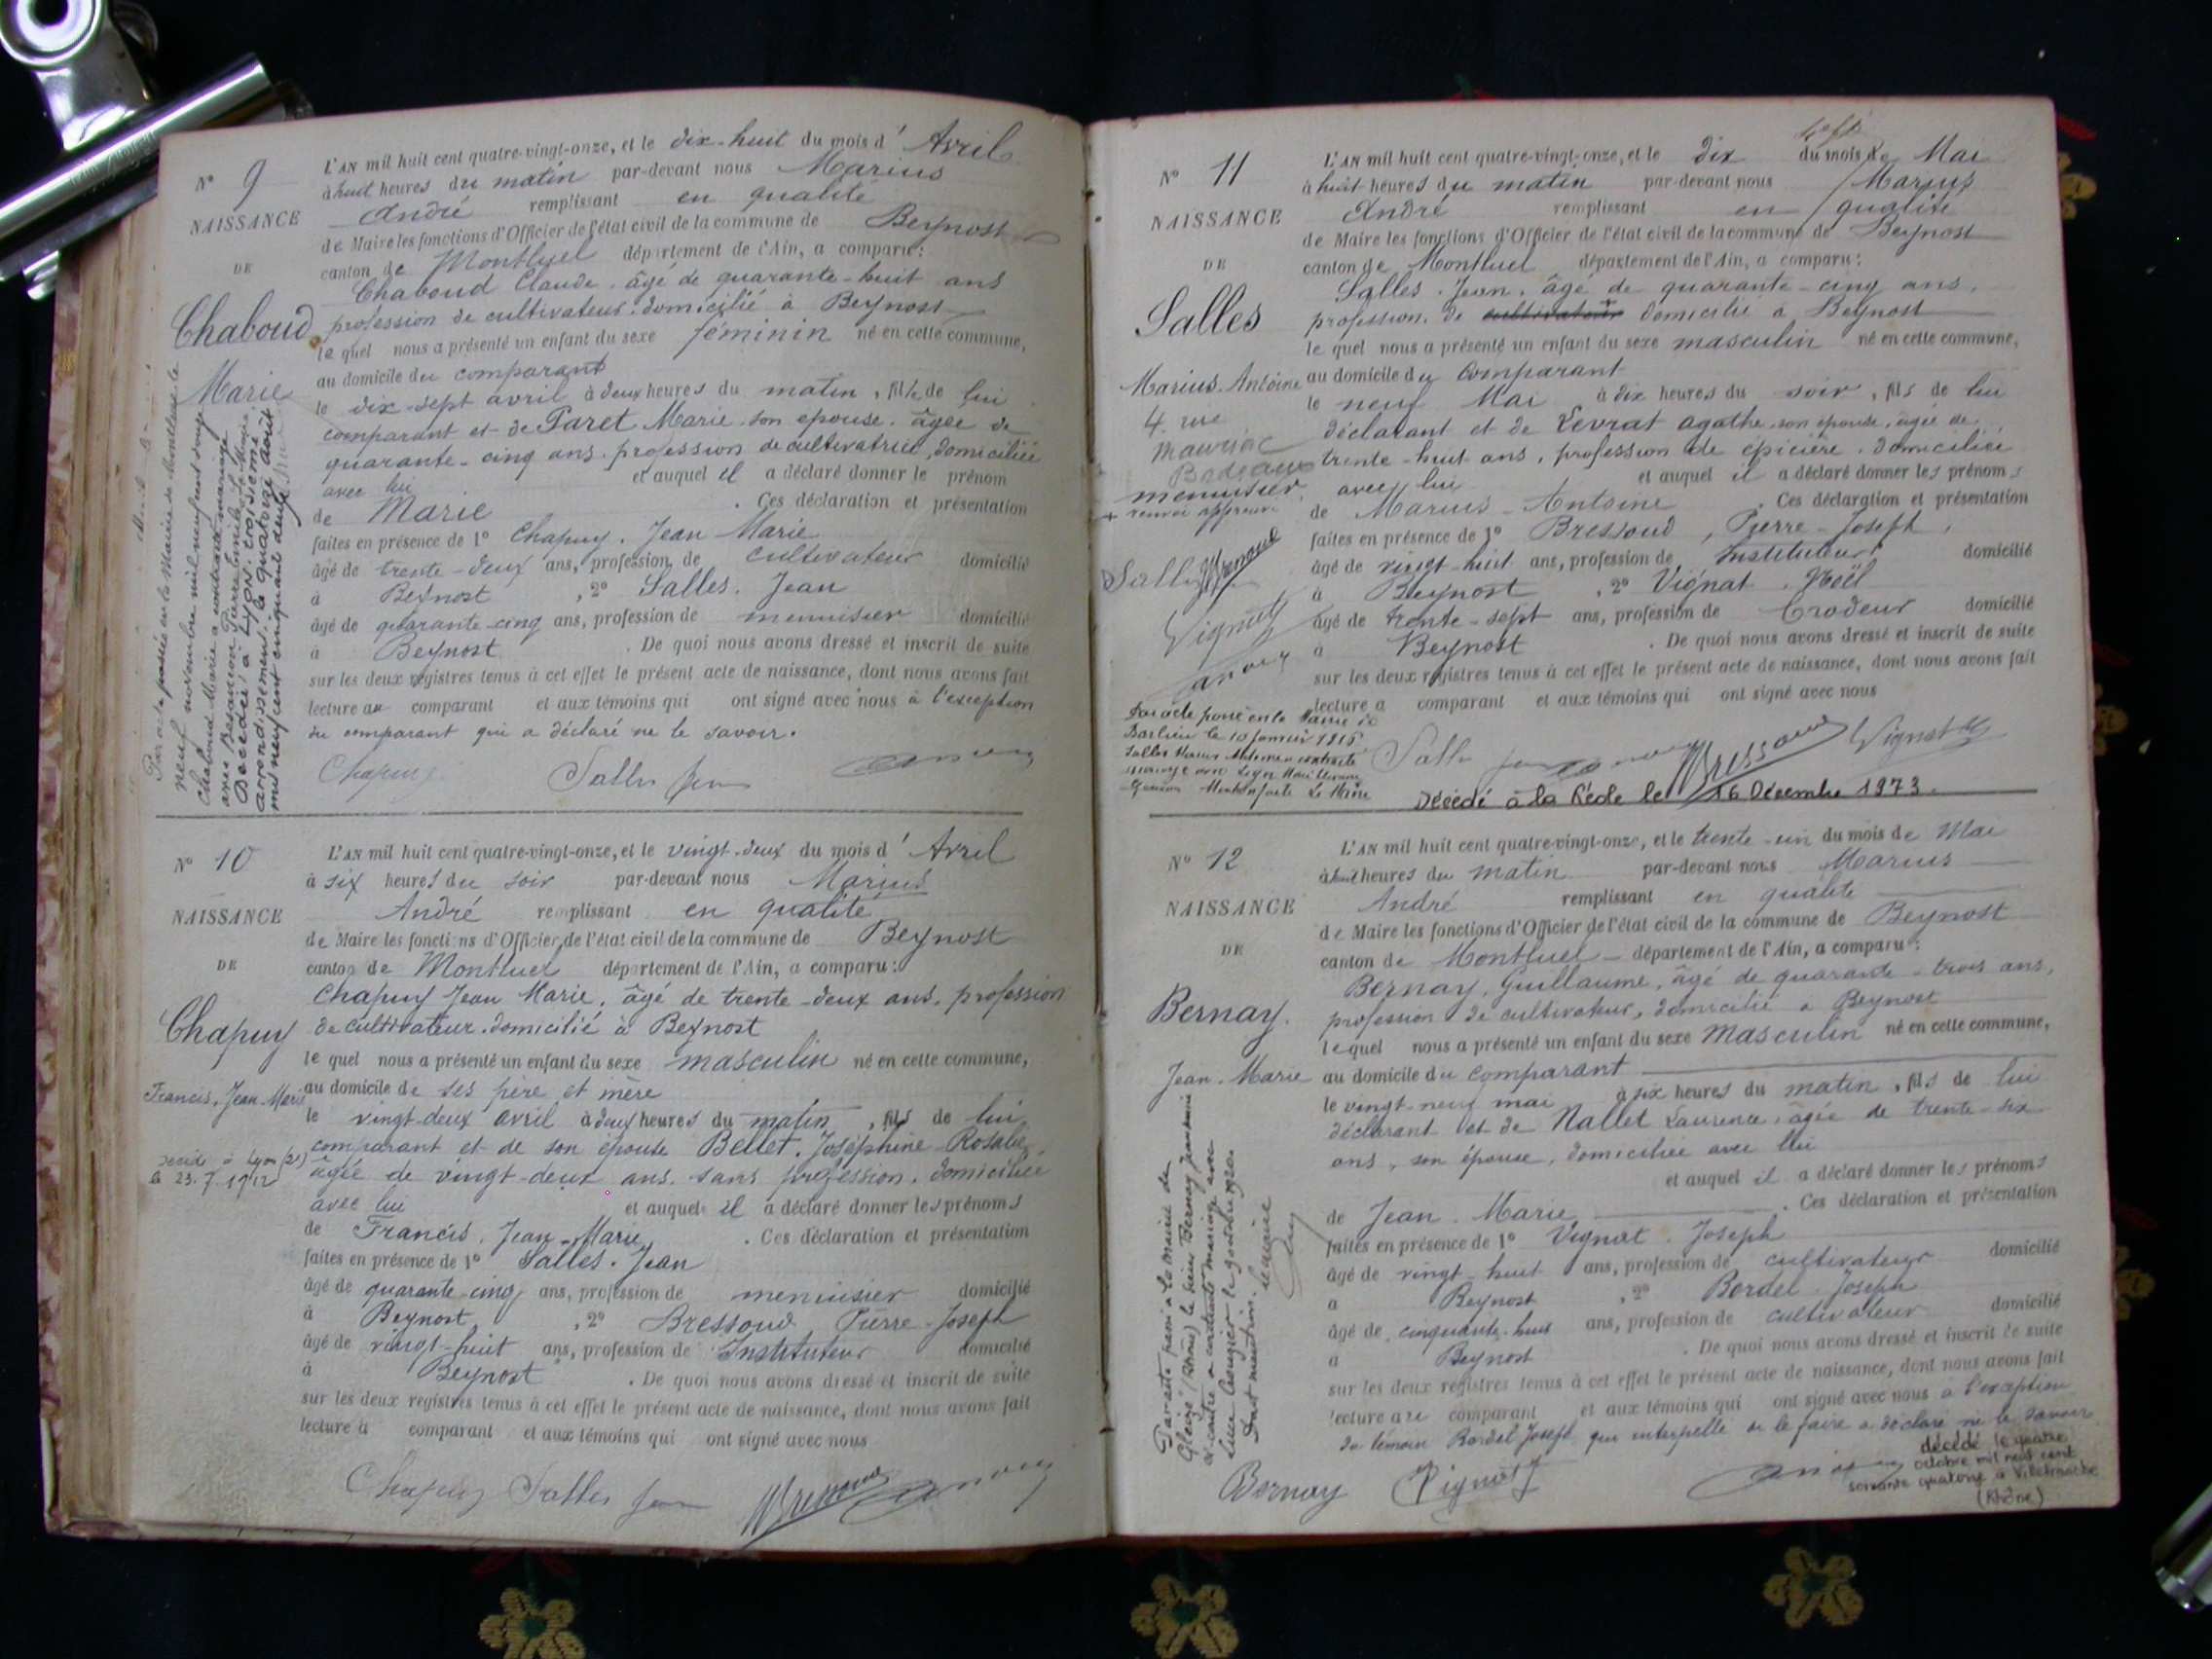 N° 9
NAISSANCE
DE
Chaboud
Marie
L'AN mil huit cent quatre-vingt-onze, et le dix-huit du mois d'Avril
à huit heures du matin par-devant nous Marius
André remplissant en qualité
de Maire les fonctions d'Officier de l'état civil de la commune de Beynost
canton de Montluel département de l'Ain, a comparu:
Chaboud Claude, âgé de quarante-huit ans
profession de cultivateur, domicilié à Beynost
lequel nous a présenté un enfant du sexe féminin né en cette commune,
au domicile du comparant
le dix-sept avril à deux heures du matin, fille de lui
comparant et de Paret Marie son epouse, âgée de
quarante-cinq ans, profession de cultivatrice, domiciliée
avec lui et auquel il a déclaré donner le prénom
de Marie. Ces déclaration et présentation
faites en présence de 1° Chapuy, Jean Marie
âgé de trente-deux ans, profession de cultivateur domicilié
à Beynost, 2° Salles, Jean
âgé de quarante-cinq ans, profession de menuisier domicilié
à Beynost. De quoi nous avons dressé et inscrit de suite
sur les deux registres tenus à cet effet le présent acte de naissance, dont nous avons fait
lecture au comparant et aux témoins qui ont signé avec nous à l'exception
du comparant qui a déclaré ne le savoir.
Chapuy Salles Jean
Par acte passé en la Mairie de Montluel le
neuf novembre mil neuf cent
Chaboud Marie a contracté mariage
avec
Décédée à Lyon, troisième
arrondissement, le quatorze août
mil neuf cent cinquante deux
N° 10
NAISSANCE
DE
Chapuy
Francis, Jean-Marie
décédé à Lyon (2e)
le 23.7.1912
L'AN mil huit cent quatre-vingt-onze, et le vingt-deux du mois d'Avril
à six heures du soir par-devant nous Marius
André remplissant en qualité
de Maire les fonctions d'Officier de l'état civil de la commune de Beynost
canton de Montluel département de l'Ain, a comparu:
Chapuy Jean Marie, âgé de trente-deux ans, profession
de cultivateur, domicilié à Beynost
lequel nous a présenté un enfant du sexe masculin né en cette commune,
au domicile de ses père et mère
le vingt-deux avril à deux heures du matin, fils de lui
comparant et de son épouse Bellet, Joséphine Rosalie,
âgée de vingt-deux ans, sans profession, domiciliée
avec lui et auquel il a déclaré donner les prénoms
de Francis, Jean-Marie. Ces déclaration et présentation
faites en présence de 1° Salles, Jean
âgé de quarante-cinq ans, profession de menuisier domicilié
à Beynost, 2° Bressoud, Pierre-Joseph
âgé de vingt-huit ans, profession de Instituteur domicilié
à Beynost. De quoi nous avons dressé et inscrit de suite
sur les deux registres tenus à cet effet le présent acte de naissance, dont nous avons fait
lecture à comparant et aux témoins qui ont signé avec nous
Chapuy Salles Jean
N° 11
NAISSANCE
DE
Salles
Marius-Antoine
4, rue
Mauriac
menuisier
+ renvoi approuvé
Salles
Vignat
L'AN mil huit cent quatre-vingt-onze, et le dix du mois de Mai
à huit heures du matin par-devant nous Marius
André remplissant en qualité
de Maire les fonctions d'Officier de l'état civil de la commune de Beynost
canton de Montluel département de l'Ain, a comparu:
Salles, Jean, âgé de quarante-cinq ans,
profession de cultivateur + domicilié à Beynost
lequel nous a présenté un enfant du sexe masculin né en cette commune,
au domicile du Comparant
le neuf Mai à dix heures du soir, fils de lui
déclarant et de Levrat agathe, son épouse, âgée de
trente-huit ans, profession de épicière, domiciliée
avec lui et auquel il a déclaré donner les prénoms
de Marius-Antoine. Ces déclaration et présentation
faites en présence de 1° Bressoud, Pierre-Joseph,
âgé de vingt-huit ans, profession de Instituteur domicilié
à Beynost, 2° Vignat, Noël
âgé de trente-sept ans, profession de Brodeur domicilié
à Beynost. De quoi nous avons dressé et inscrit de suite
sur les deux registres tenus à cet effet le présent acte de naissance, dont nous avons fait
lecture a comparant et aux témoins qui ont signé avec nous
Salles Jean Bressoud Vignat
Par acte passé en la Mairie de
le 10 Janvier
Salles Marius Antoine a contracté
mariage avec
Le Maire
Décédé à la Réole le 16 Décembre 1973.
N° 12
NAISSANCE
DE
Bernay.
Jean-Marie
L'AN mil huit cent quatre-vingt-onze, et le trente-un du mois de Mai
à huit heures du matin par-devant nous Marius
André remplissant en qualité
de Maire les fonctions d'Officier de l'état civil de la commune de Beynost
canton de Montluel département de l'Ain, a comparu:
Bernay, Guillaume, âgé de quarante-trois ans,
profession de cultivateur, domicilié à Beynost
lequel nous a présenté un enfant du sexe Masculin né en cette commune,
au domicile du comparant
le vingt-neuf mai à six heures du matin, fils de lui
déclarant et de Nallet Laurence, âgée de trente-six
ans, son épouse, domiciliée avec lui
et auquel il a déclaré donner les prénoms
de Jean-Marie. Ces déclaration et présentation
faites en présence de 1° Vignat, Joseph
âgé de vingt-huit ans, profession de cultivateur domicilié
à Beynost, 2° Bordel Joseph
âgé de cinquante-huit ans, profession de cultivateur domicilié
à Beynost. De quoi nous avons dressé et inscrit de suite
sur les deux registres tenus à cet effet le présent acte de naissance, dont nous avons fait
lecture au comparant et aux témoins qui ont signé avec nous à l'exception
du témoin Bordel Joseph qui interpellé de le faire a déclaré ne le savoir
Bernay Vignat J
Par acte passé à la mairie de
Gleizé (Rhône) le sieur Bernay Jean Marie
ci-contre a contracté mariage avec
Dont mention.
décédé le quatre
octobre mil neuf cent
soixante quatorze à Villefranche
(Rhône)